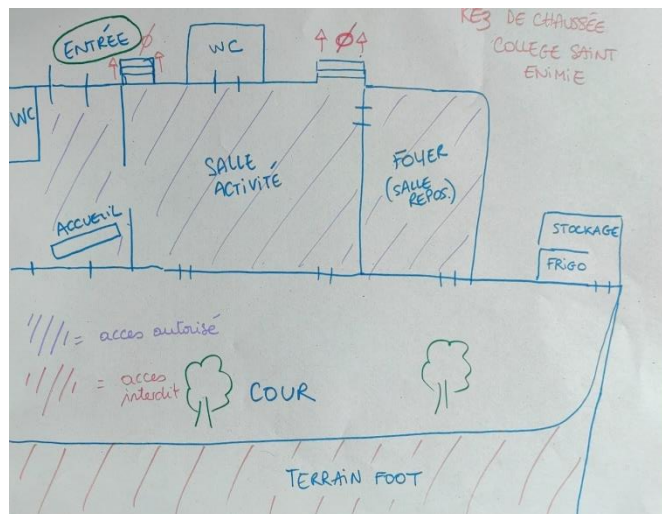 REZ DE CHAUSSÉE
COLLEGE SAINT
ENIMIE
ENTRÉE
WC
WC
SALLE
ACTIVITÉ
FOYER
(SALLE
REPOS.)
ACCUEIL
STOCKAGE
FRIGO
= acces autorisé
= acces
interdit
COUR
TERRAIN FOOT